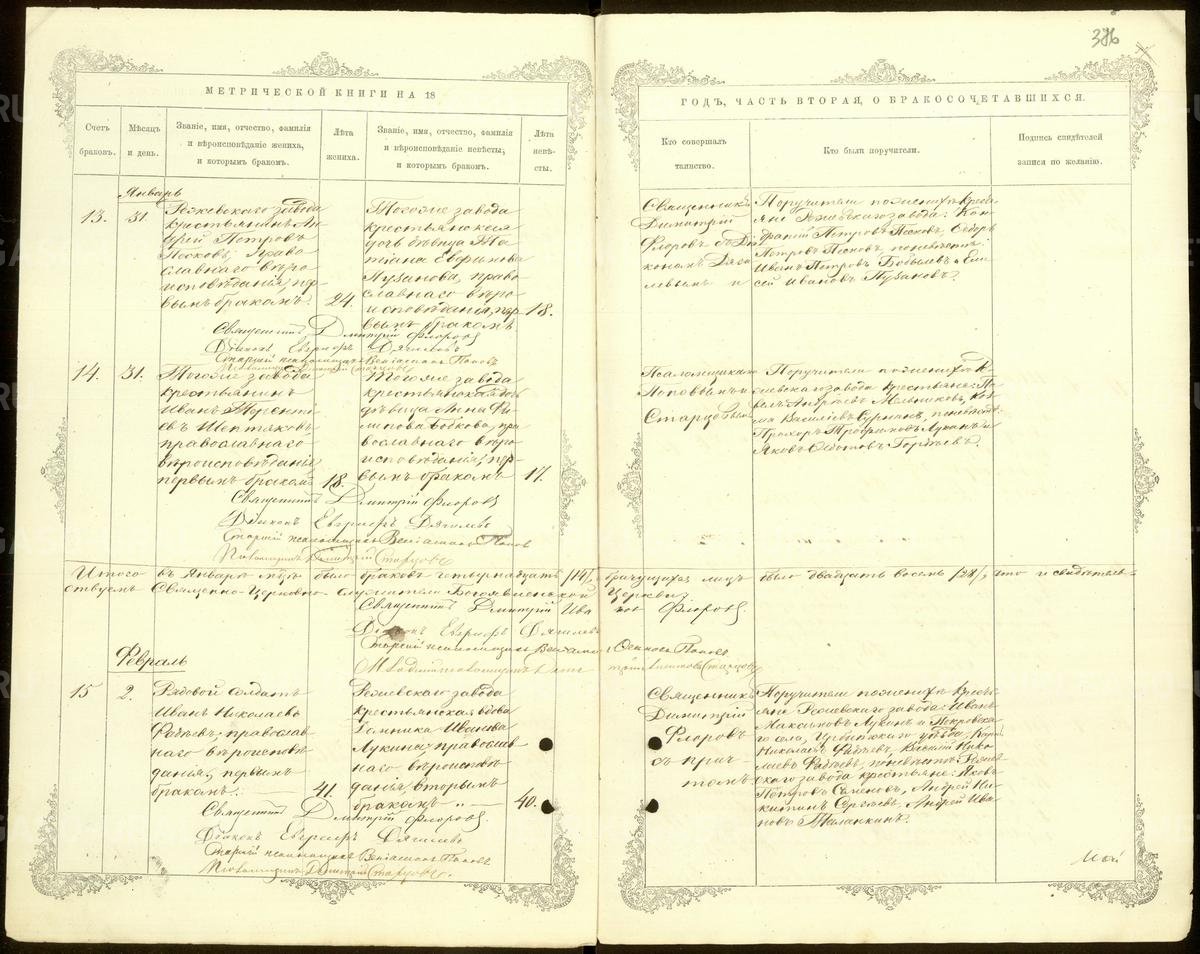 386
МЕТРИЧЕСКОЙ КНИГИ НА 18
ГОДЪ, ЧАСТЬ ВТОРАЯ, О БРАКОСОЧЕТАВШИХСЯ.
Счетъ
браковъ.
Мѣсяцъ
и день.
Званіе, имя, отчество, фамилія
и вѣроисповѣданіе жениха,
и которымъ бракомъ.
Лѣта
жениха.
Званіе, имя, отчество, фамилія
и вѣроисповѣданіе невѣсты,
и которымъ бракомъ.
Лѣта
невѣ-
сты.
Кто совершалъ
таинство.
Кто были поручители.
Подпись свидѣтелей
записи по желанію.
Январь
13.
31.
Режевскаго завода
крестьянинъ Ан-
дрей Петровъ
Песковъ, право
славнаго вѣро
исповѣданія, пер
вымъ бракомъ.
24.
Тогоже завода
крестьянская
дочь дѣвица Та-
тіана
Пузанова, право
славнаго вѣро
исповѣданія, пер
вымъ бракомъ
18.
Священникъ
Димитрій
Флоровъ съ Діа
кономъ Дяги
левымъ и
Поручители по женихѣ кресть
яне Режевскаго завода: Кон
дратій Петровъ Песковъ, Ѳедоръ
Петровъ Песковъ, по невѣстѣ:
Иванъ Петровъ Бобылевъ и Ели
сей Ивановъ Пузановъ.
Священникъ Димитрій Флоровъ
Діаконъ Дягилевъ
Старшій псаломщикъ Веніаминъ Поповъ
14.
31.
Тогоже завода
крестьянинъ
Иванъ Теренті
евъ
православнаго
вѣроисповѣданія
первымъ бракомъ
18.
Тогоже завода
крестьянская дочь
дѣвица Анна Фи
липова Бобкова, пра
вославнаго вѣро
исповѣданія, пер-
вымъ бракомъ
17.
Псаломщиками
Поповымъ и
Старцевымъ
Поручители по женихѣ Ре
жевскаго завода крестьяне: Па
велъ Андреевъ Мельниковъ, Коз
ма Васильевъ по невѣстѣ
Прохоръ Трофимовъ Лукинъ и
Яковъ Ѳедотовъ Гордѣевъ.
Священникъ Димитрій Флоровъ
Діаконъ Дягилевъ
Старшій псаломщикъ Веніаминъ Поповъ
Псаломщикъ Димитрій Старцевъ
Итого въ Январѣ м-цѣ было браковъ четырнадцать /14/, брачущихся лицъ было двадцать восемь /28/, что и свидѣтель-
ствуемъ Священно-Церковно служители Богоявленской Церкви:
Священникъ Димитрій Ива
новъ Флоровъ.
Діаконъ Дягилевъ
Старшій псаломщикъ Веніаминъ Поповъ
Февраль
15
2.
Рядовой солдатъ
Иванъ Николаевъ
Фадѣевъ, православ
наго вѣроисповѣ
данія, первымъ
бракомъ.
41.
Режевскаго завода
крестьянская вдова
Домника Иванова
Лукина, православ
наго вѣроисповѣ
данія, вторымъ
бракомъ
40.
Священникъ
Димитрій
Флоровъ
съ прич-
томъ
Поручители по женихѣ кресть
яне Режевскаго завода: Иванъ
Максимовъ Лукинъ и Покровска
го села, Ирбитскаго уѣзда,
Николаевъ Фадѣевъ, Василій Нико
лаевъ Фадѣевъ, по невѣстѣ Режев
скаго завода крестьяне: Яковъ
Петровъ Семеновъ, Андрей Ни
китинъ Сергѣевъ, Андрей Ива
новъ
Священникъ Димитрій Флоровъ.
Діаконъ Дягилевъ
Старшій псаломщикъ Веніаминъ Поповъ
Псаломщикъ Димитрій Старцевъ.
Май